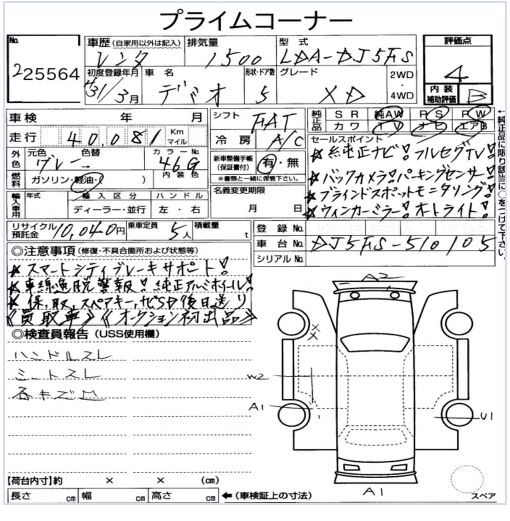 プライムコーナー
No. 25564
車歴 (自家用以外は記入) レンタ
排気量 1500
型式 LDA-DJ5FS
評価点 4
初度登録年月 H31/3月
車名 デミオ
形状・ドア数 5
グレード XD
2WD
4WD
内装補助評価 B
車検 年 月
シフト FAT
純正品 SR 純AW PS PW
カワ TV ナビ エアB
←純正品に限り該当に○をつけて下さい
走行 40081 Km マイル
冷房 A/C
セールスポイント
★純正ナビ!フルセグTV!
★バックカメラ!パーキングセンサー!
★ブラインドスポットモニタリング!
★ウィンカーミラー!オートライト!
外色 元色 色替 グレー→
カラーNo. 46G
内装色
新車整備手帳(保証書付) 有・無
※書類と一緒に保管して下さい。
燃料 ガソリン・軽油・( )
名義変更期限 月 日
輸入車用 年式 輸入区分 ハンドル
ディーラー・並行 左・右
リサイクル預託金 10,040円
乗車定員 5人
積載量 t
登録No.
車台No. DJ5FS-510105
シリアルNo.
◎注意事項 (修復・不具合箇所および状態等)
★スマートシティブレーキサポート!
★車線逸脱警報!純正アルミホイール!
★保、取、スペアキー、ナビSD後日送り
《買取車》《オークション初出品》
◎検査員報告 (USS使用欄)
ハンドルスレ
シートスレ
各キズ凹
A2
XX
W2
A1
U1
A1
スペア
【荷台内寸】約 × × (cm)
長さ cm 幅 cm 高さ cm ←(車検証上の寸法)